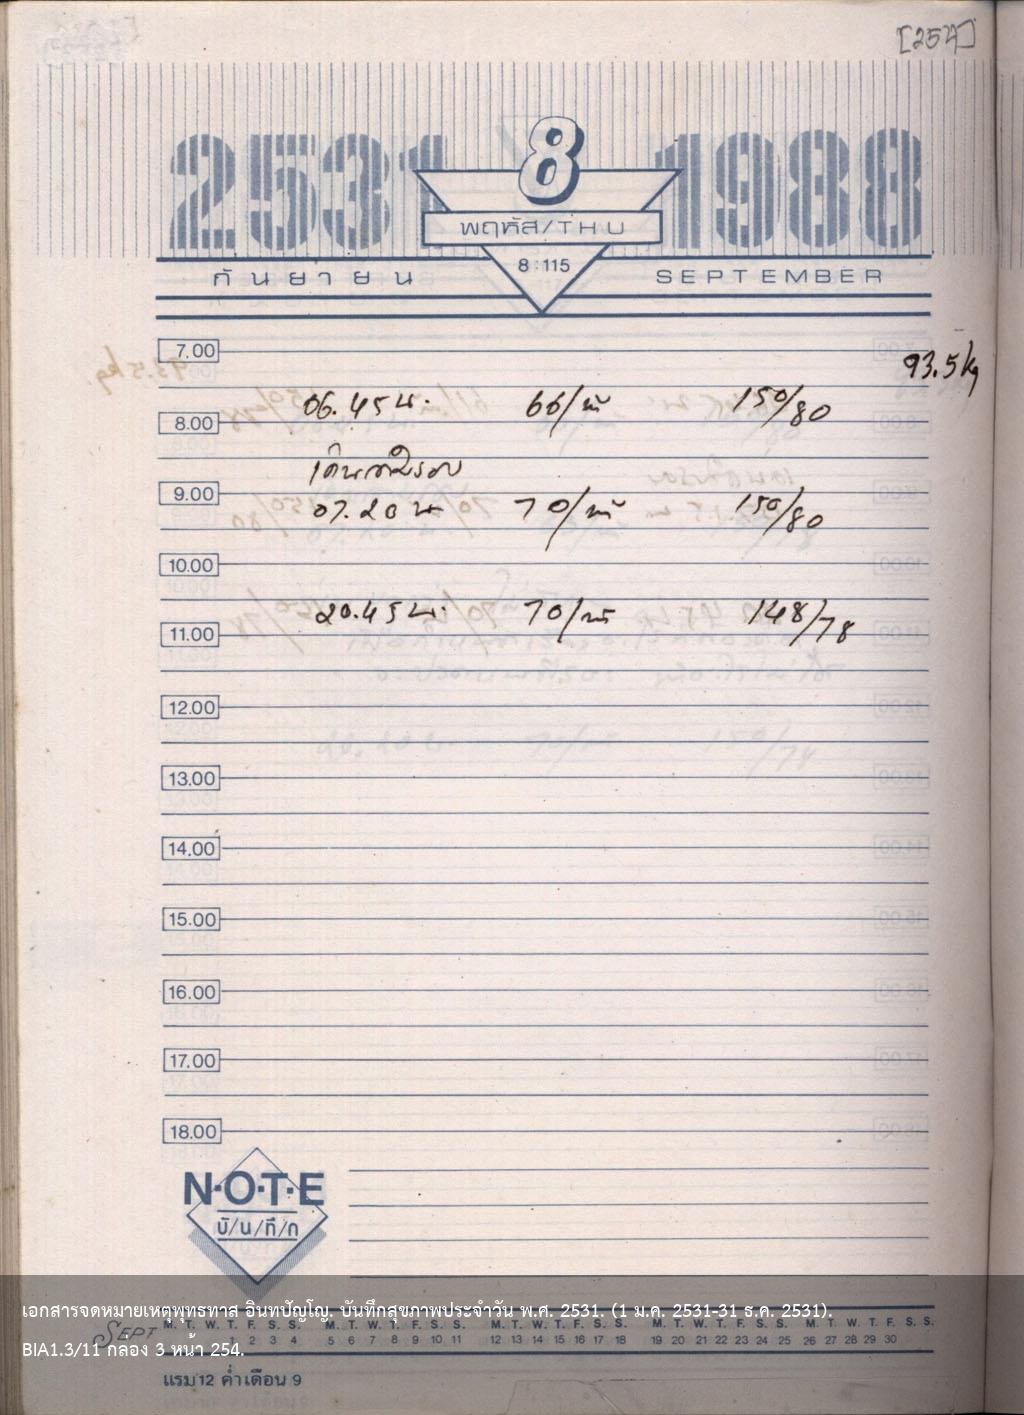 [254]
2531
8
1988
พฤหัส/THU
8:115
กันยายน
SEPTEMBER
7.00
93.5 kg
06.45 น. 66/นาที 150/80
8.00
เดินสามรอบ
9.00
07.20 น 70/นาที 150/80
10.00
20.45 น. 70/นาที 148/78
11.00
12.00
13.00
14.00
15.00
16.00
17.00
18.00
N·O·T·E
บั/น/ทึ/ก
เอกสารจดหมายเหตุพุทธทาส อินทปัญโญ. บันทึกสุขภาพประจำวัน พ.ศ. 2531. (1 ม.ค. 2531-31 ธ.ค. 2531).
SEPT M. T. W. T. F. S. S. M. T. W. T. F. S. S. M. T. W. T. F. S. S. M. T. W. T. F. S. S. M. T. W. T. F. S. S.
1 2 3 4 5 6 7 8 9 10 11 12 13 14 15 16 17 18 19 20 21 22 23 24 25 26 27 28 29 30
BIA1.3/11 กล่อง 3 หน้า 254.
แรม 12 ค่ำ เดือน 9